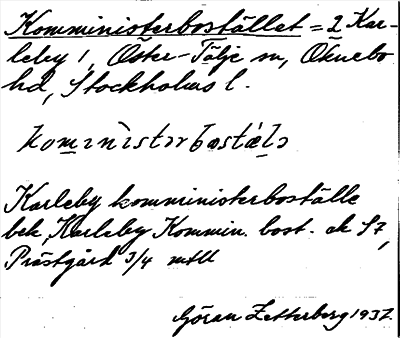 Komministerbostället = 2 Kar-
leby 1, Öster-Tälje sn, Öknebo
hd, Stockholms l.
komministərbostälə
Karleby komministerboställe
bek, Karleby Kommin. bost. ek 57,
Prästgård 3/4 mtll
Göran Zetterberg 1937.